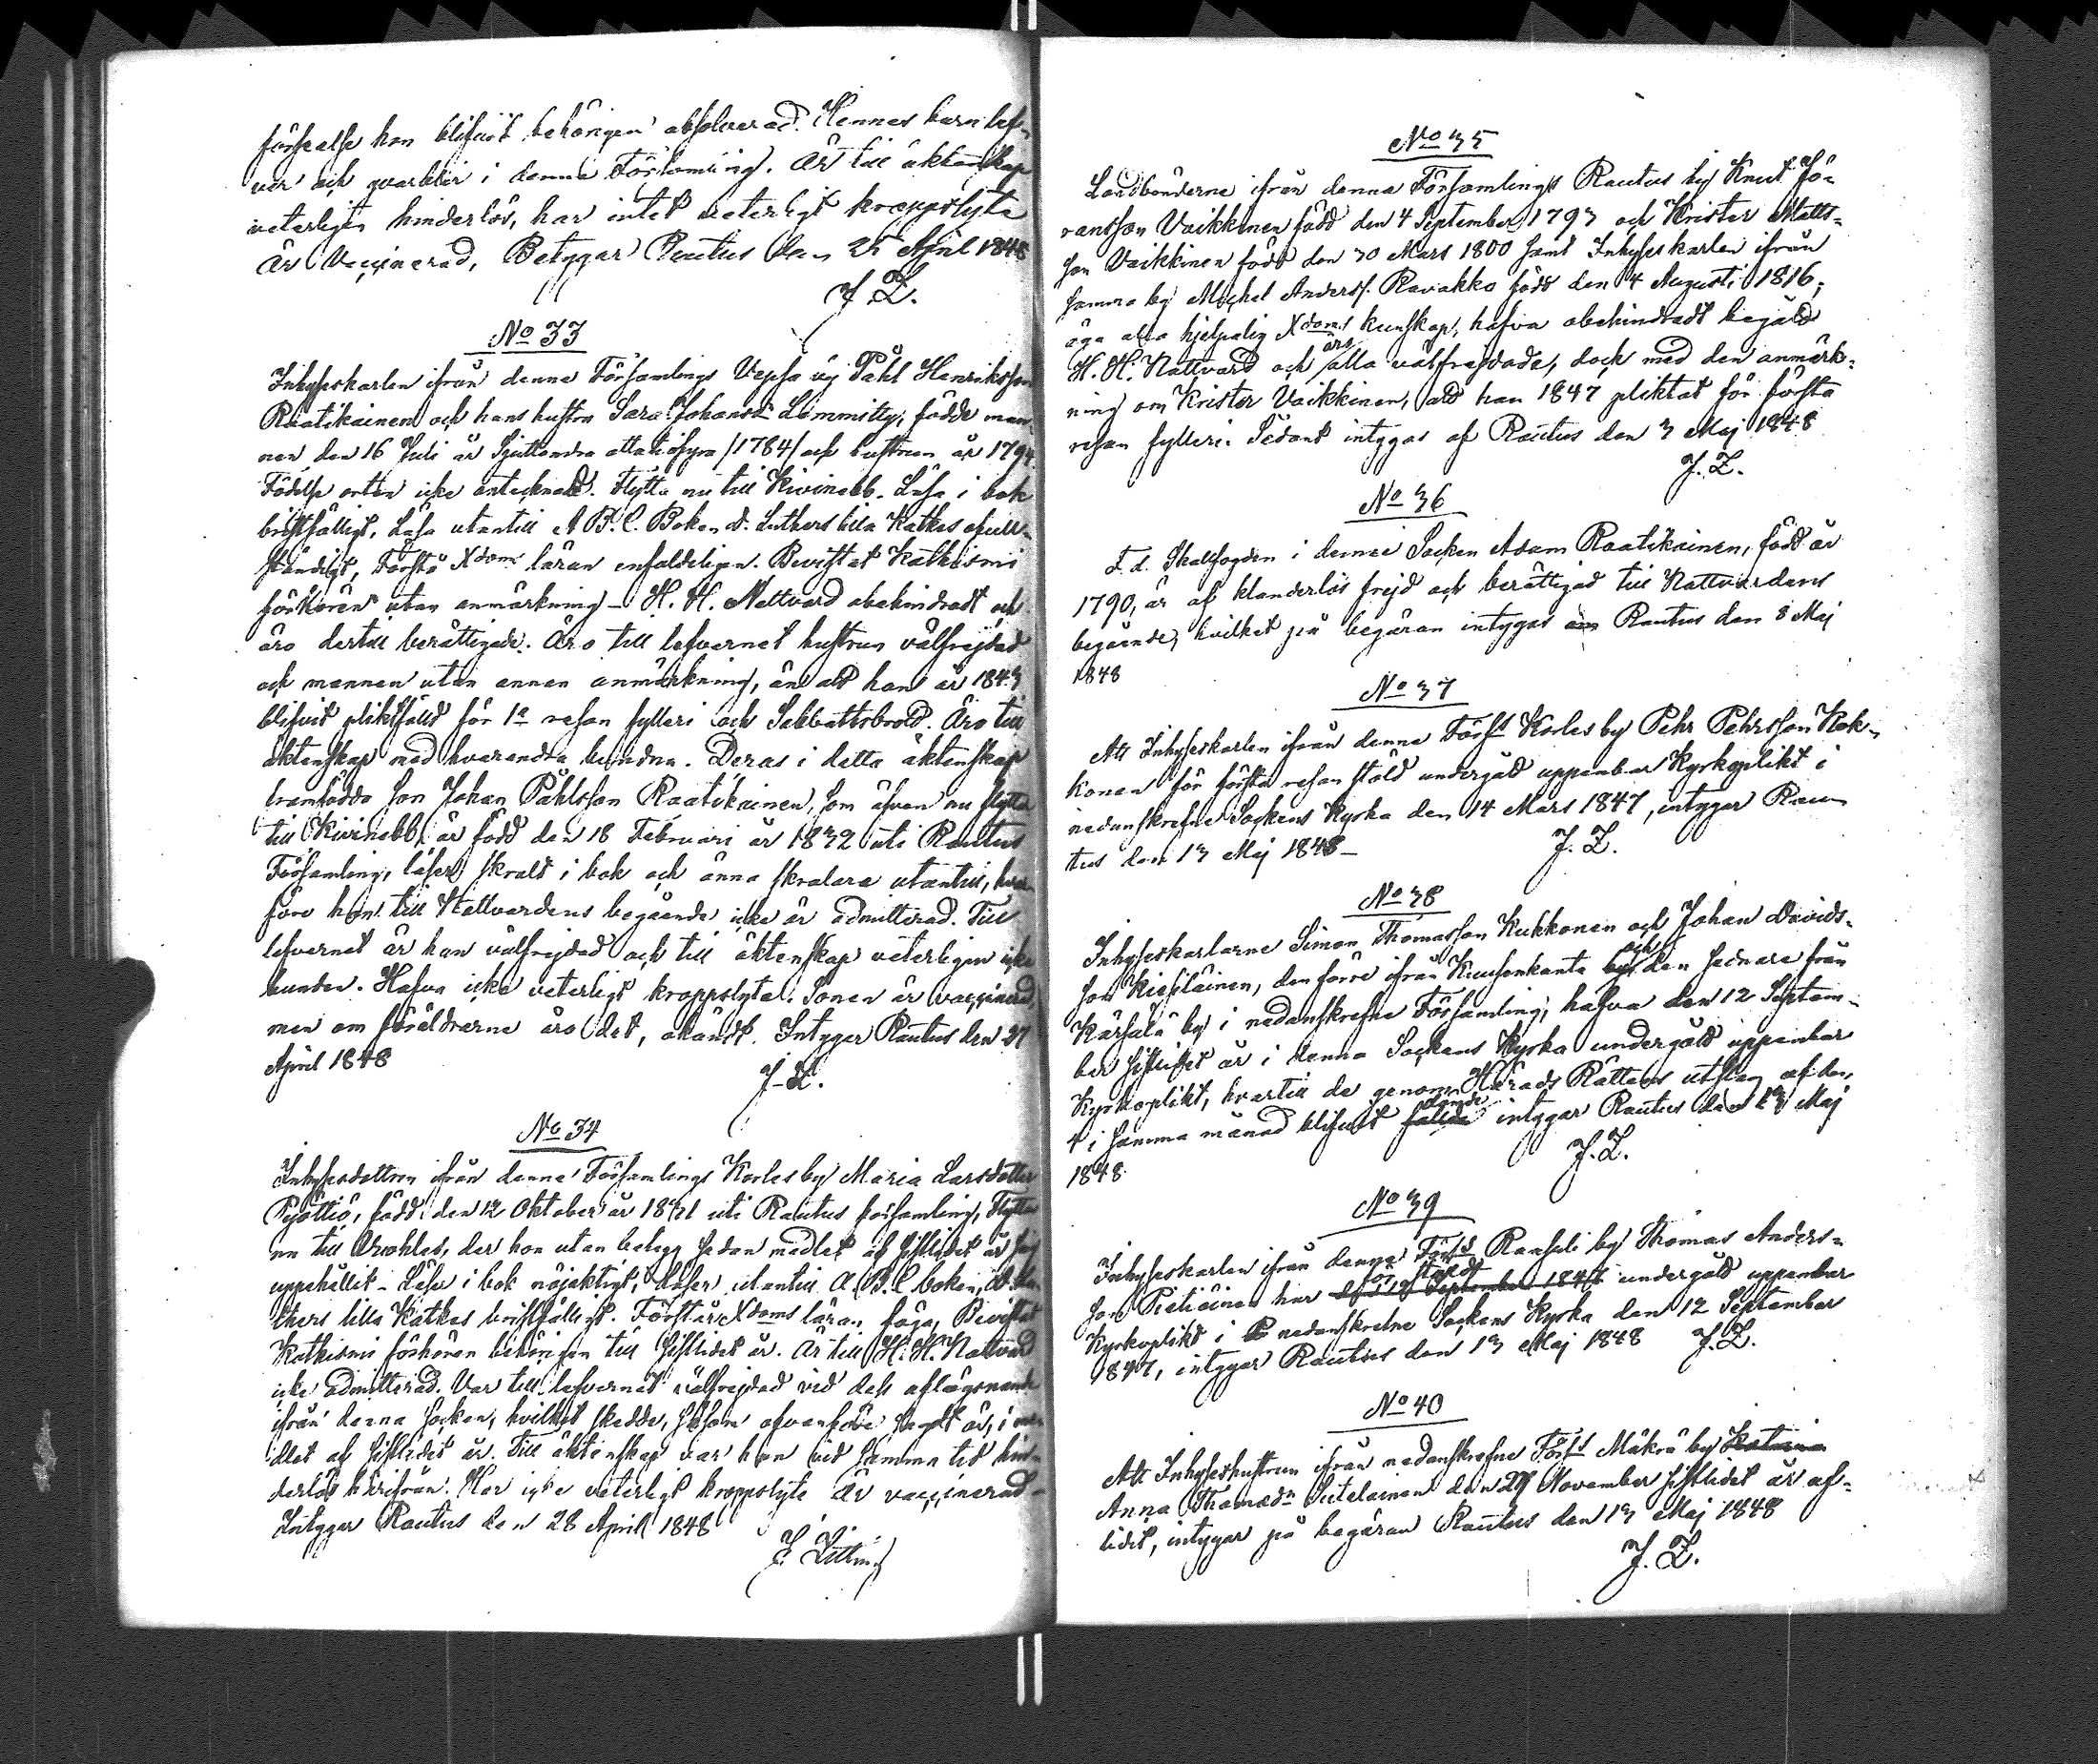 förseelse hon blifvit behörigen absolverad. Hennes barn lef-
ver och qvarblir i denna Församling. Är till äktenskap
veterligen hinderlös, har intet veterligt kroppslyte
Är Vaccinerad, Betygar Rautus den 25 April 1848
J. L.
No 33
Inhyseskarlen ifrån denna Församlings Vepsa by Påhl Henriksson
Raatikainen och hans hustru Sara Johansdr Lommitty, födde man-
nen den 16 Juli år Sjuttonde åttatiofyra /1784/ och hustrun år 1794.
Födelse orten icke antecknad. Flytta nu till Kivinebb. Läsa i bok
bristfälligt, Läsa utantill A B. C. Boken D. Luthers lilla Katkes ofull-
ständigt, Förstå Xdoms läran enfaldeligen. Bevistat Katkismi
förhören utan anmärkning - H. H. Nattvard obehindradt och
äro dertill berättigade. Äro till lefvernet hustrun välfrejdad
och mannen utan annan anmärkning, än att han år 1843
blifvit pliktfälld för 1a resan fylleri och Sabbattsbrott. Äro till
äktenskap med hvarandra bundna. Deras i detta äktenskap
framfödda Son Johan Påhlsson Raatikainen, som äfven nu flytta
till Kivinebb, är född den 18 Februari år 1832 uti Rautus
Församling, läser skralt i bok och ännu skralare utantill, hvar-
före han till Nattvardens begående icke är admitterad. Till
lefvernet är han välfrejdad och till äktenskap veterligen icke
bunden. Hafva icke veterligt kroppslyte. Sonen är vaccinerad,
men om föräldrarne äro det, okändt. Intygar Rautus den 27
April 1848
J. L.
No 34
Inhysesdottren ifrån denna Församlings Korles by Maria Larsdotter
Pyöttiö, född den 12 Oktober år 1821 uti Rautus församling, Flyttar
nu till Walkjärvi, der hon utan betyg sedan medlet af sistlidet år sig
uppehållit - Läser i bok nöjaktigt, Läser utantill A B. C boken, D. Lu-
thers lilla Katkes bristfälligt. Förstår Xdoms läran föga, Bevistat
Katkismi förhören behörigen till sistlidet år. Är till H. H. Nattvard
icke admitterad. Var till lefvernet välfrejdad vid dess aflägsnande
ifrån denna Socken, hvilket skedde, såsom ofvanföre sagdt är, i me-
dlet af sistlidet år. Till äktenskap var hon vid samma tid hin-
derlös härifrån. Har icke veterligt kroppslyte Är vaccinerad -
Intygar Rautus den 28 April 1848
J. Litting
No 35
Landbönderne ifrån denna Församlings Rautus by Knut Jö-
ransson Vaikkinen född den 4 September 1793 och Krister Matts-
son Vaikkinen född den 30 Mars 1800 samt Inhyseskarlen ifrån
samma by Michel Anderss. Ravakko född den 4 Augusti 1816,
äga alla hjelpelig Xdoms kunskap, hafva obehindradt begådt
H. H. Nattvard och äro alla välfrejdade, dock med den anmärk-
ning om Krister Vaikkinen, att han 1847 pliktat för första
resan fylleri. Sådant intygas af Rautus den 3 Maj 1848
J. L.
No 36
F. d. Skallfogden i denna Socken Adam Raatikainen, född år
1790, är af klanderlös frejd och berättigad till Nattvardens
begående, hvilket på begäran intygas Rautus den 8 Maj
1848
No 37
Att Inhyseskarlen ifrån denna Förs:s Korles by Pehr Pehrsson Kok-
konen för första resan stöld undergått uppenbar Kyrkoplikt i
nedanskrefne Sockens Kyrka den 14 Mars 1847, intygar Rau-
tus den 13 Maj 1848 -
J. L.
No 38
Inhyseskarlarne Simon Thomasson Kukkonen och Johan Davids-
son Kiesiläinen, den förre ifrån Kuusenkanta och den sednare från
Kärsälä by i nedanskrefne Församling, hafva den 12 Septem-
ber sistlidet år i denna Sockens Kyrka undergått uppenbar
Kyrkoplikt, hvartill de genom Härads Rättens utslag af den
4 i samma månad blifvit dömde intygar Rautus den 13 Maj
1848
J. L.
No 39
Inhyseskarlen ifrån denna Förs:s Raasuli by Thomas Anders-
son Pietiäinen har för stöld undergått uppenbar
Kyrkoplikt i nedanskrefne Sockens Kyrka den 12 September
1847, intygar Rautus den 13 Maj 1848 J. L.
No 40
Att Inhyseshustrun ifrån nedanskrefne Förs:s Mäkrä by Katarina
Anna Thomædr Sutelainen den 27 November sistlidet år af-
lidit, intygar på begäran Rautus den 13 Maj 1848
J. L.